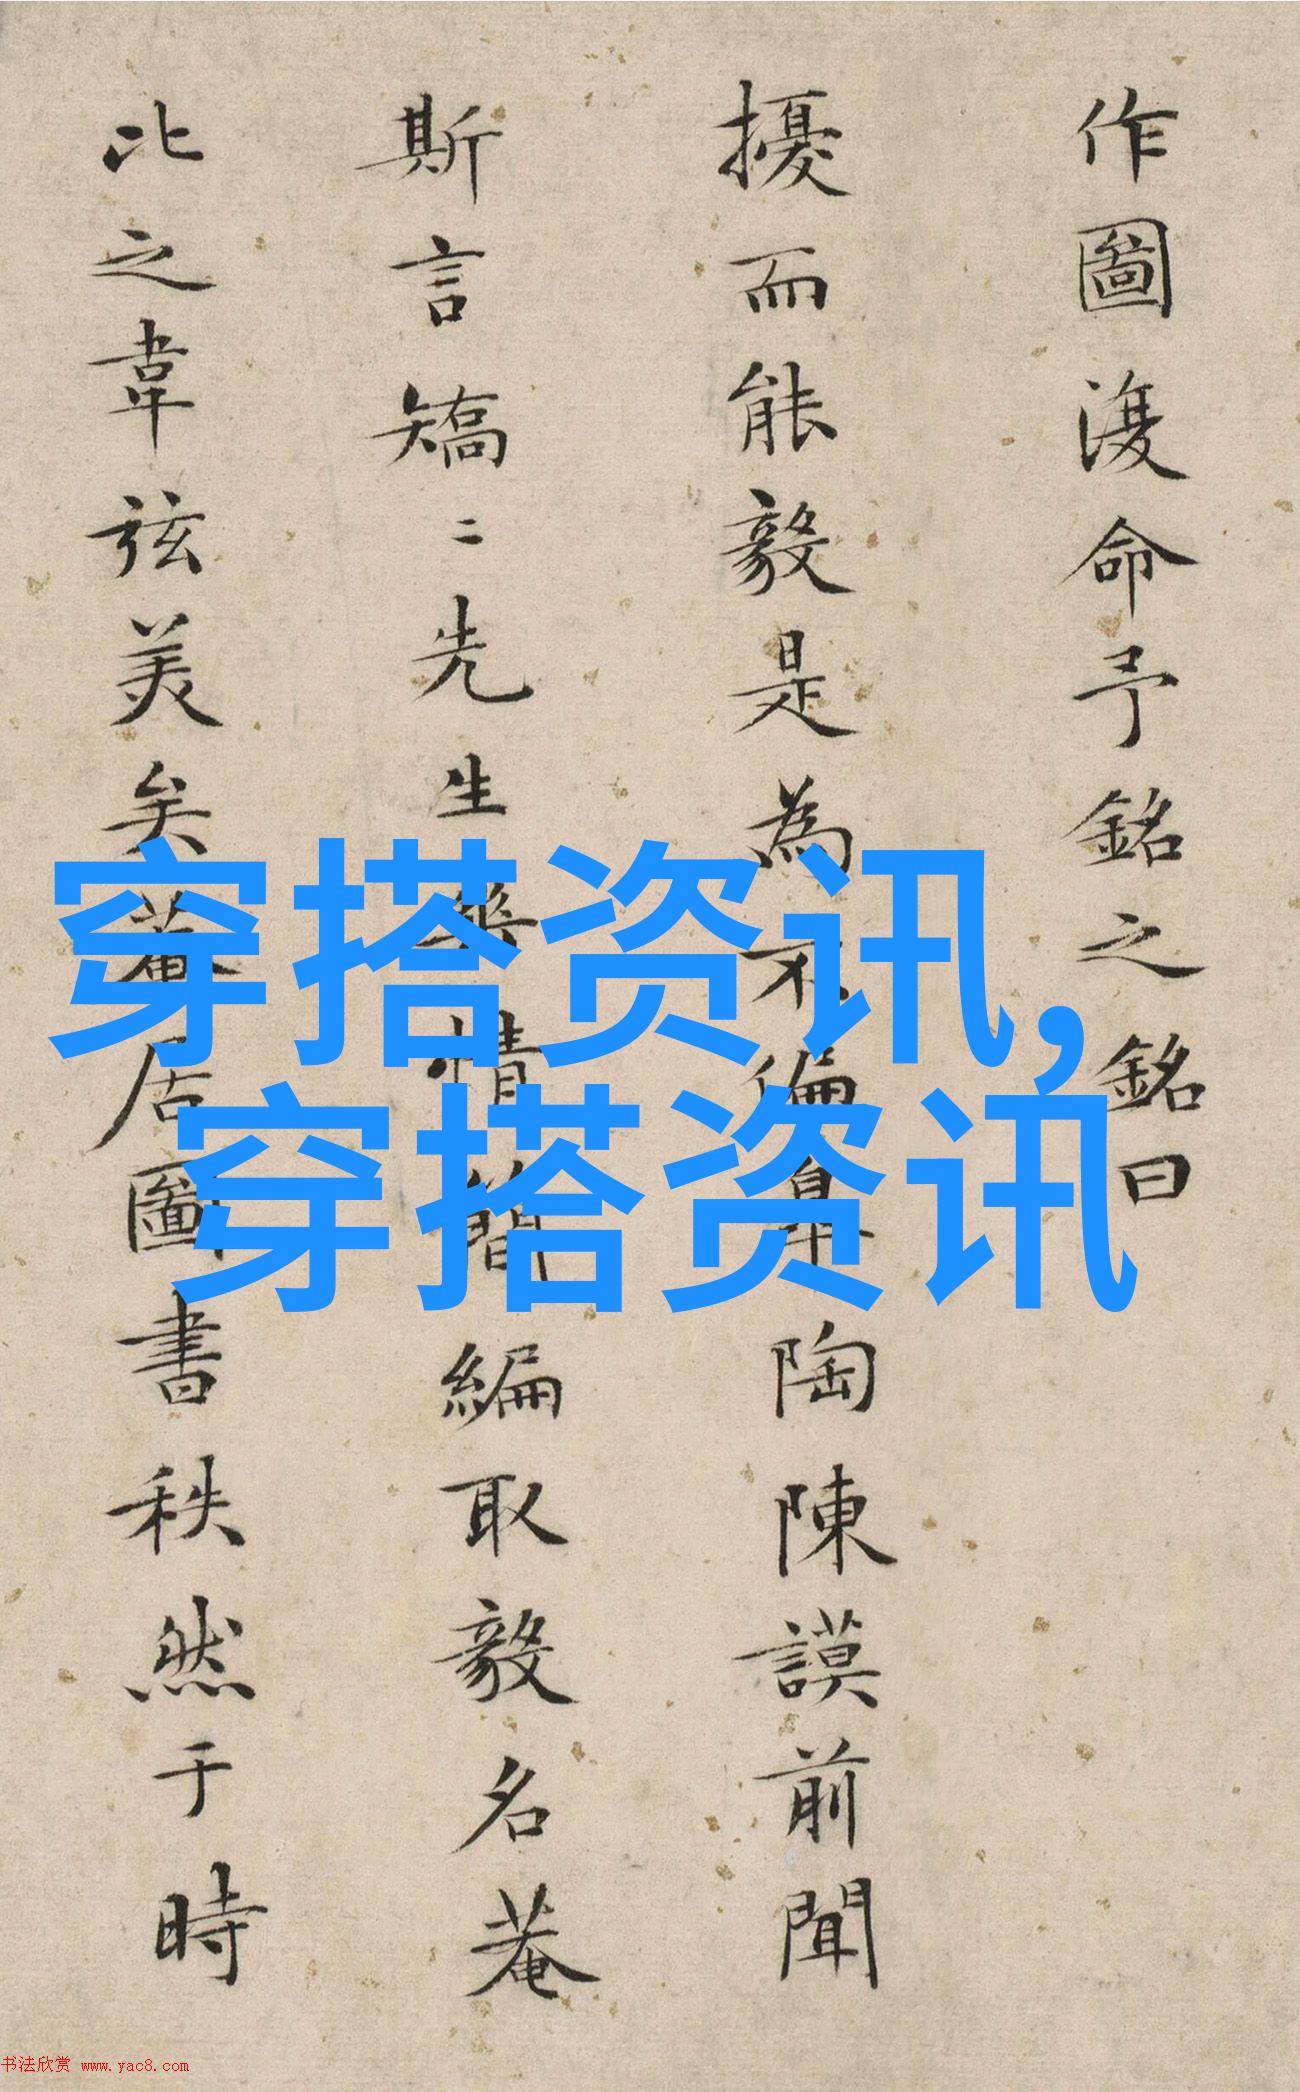 作圖復命予銘之銘曰
擾而能毅是為不偏皐陶陳謨前聞
斯言矯二先生情簡編取毅名菴
比之韋弦美矣菴居圖書秩然于時
穿搭资讯,
穿搭资讯
书法欣赏 www.yac8.com